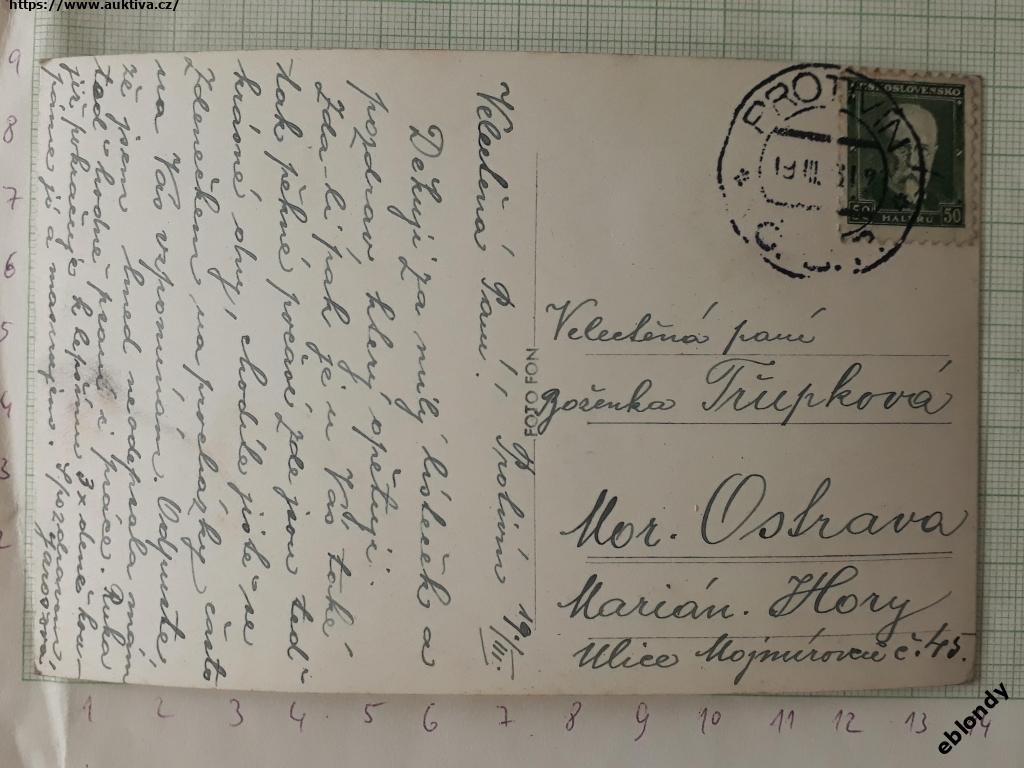 https://www.auktiva.cz/
Velectěná Paní! Protivín 19./III.
Děkuji za milý lísteček a
pozdrav který opětuji.
Zda-li pak je u Vás také
tak pěkné počasí zde jsou teď
krásné dny, chodíte jistě se
Zdenečkem na procházky často
na Vás vzpomínám. Odpusťte,
že jsem hned neodepsala mám
teď hodně psaní i práce. Ruka
již pokračuje k lepšímu 3x denně kou-
páme ji a masírujeme. S pozdravem
PROTIVÍN
19.III.
Č.S.
ČESKOSLOVENSKO
50 HALÉŘŮ 50
FOTOFON
Velectěná paní
Boženka Třupková
Mor. Ostrava
Marián. Hory
Ulice Mojmírovců č. 45.
9
8
7
6
5
4
3
2
1 2 3 4 5 6 7 8 9 10 11 12 13 14
eblondy